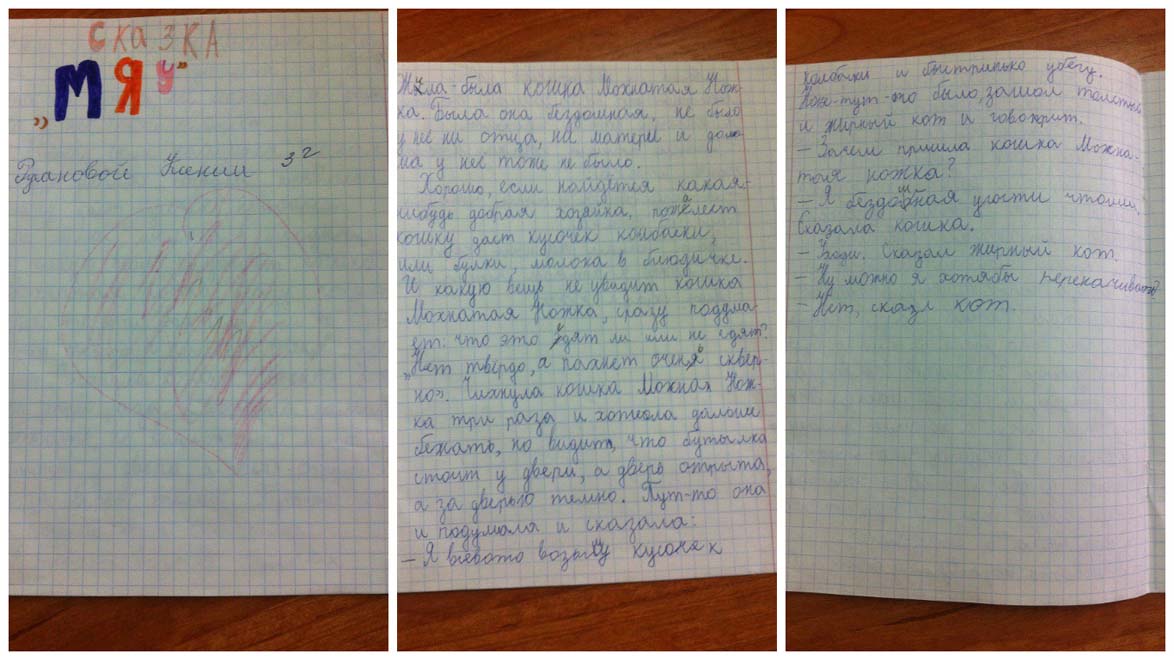 СКАЗКА
„МЯУ"
Ксении 3 г
Жила-была кошка Мохнатая Нож-
ка. Была она бездомная, не было
у неё ни отца, ни матери и дома
на у неё тоже не было.
Хорошо, если найдётся какая-
нибудь добрая хозяйка, пожалеет
кошку даст кусочек колбаски,
или булки, молока в блюдичке.
И какую вещь не увидит кошка
Мохнатая Ножка, сразу подума-
ет: что это едят ли или не едят?
„Нет твёрдо, а пахнет очень сквер-
но". Чихнула кошка Можная Нож-
ка три раза и хотела дальше
бежать, но видит, что бутылка
стоит у двери, а дверь открыта,
а за дверью темно. Тут-то она
и подумала и сказала:
– Я всевото возьму кусочек
колбаски и быстринько убегу.
тут-то было, зашол толстый
и жирный кот и говорит.
– Зачем пришла кошка Можна-
тая ножка?
– Я бездомная угости
Сказала кошка.
– Уходи. Сказал жирный кот.
– Ну можно я хотябы
– Нет, сказл кот.